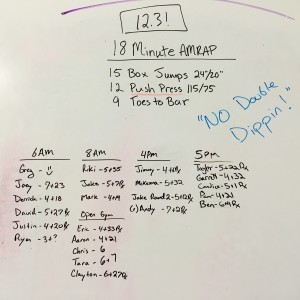 12.3!
18 Minute AMRAP
15 Box Jumps 24"/20"
12 Push Press 115/75
9 Toes to Bar
"NO Double Dippin!"
6am
Greg -
Joey - 7+23
Derrick - 4+18
David - 5+27Rx
Justin - 4+20Rx
Ryan - 3+?
8am
Riki - 5+35
Jake - 5+7Rx
Mark - 4+9
Open Gym
Eric - 4+33Rx
Aaron - 4+21
Chris - 6
Tara - 6+7
Clayton - 6+27Rx
4pm
Jimmy - 4+8Rx
Makenna - 5+32
Andy - 7+2Rx
5pm
Taylor - 5+22Rx
Garrett - 4+32
5+1Rx
4+21
Ben - 6+9Rx